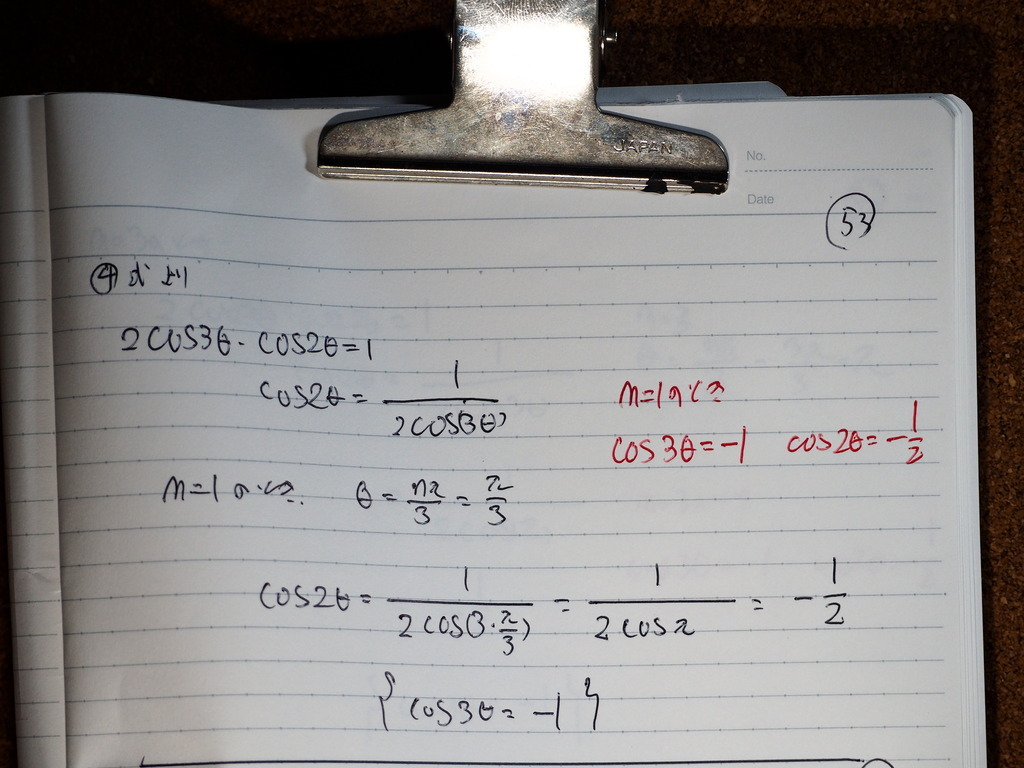 JAPAN
No.
Date
53
④式より
2cos3θ・cos2θ=1
cos2θ = 1/(2cos(3θ))
n=1のとき
cos3θ=-1 cos2θ=-1/2
n=1のとき. θ = nπ/3 = π/3
cos2θ = 1/(2cos(3・π/3)) = 1/(2cosπ) = -1/2
{ cos3θ = -1 }